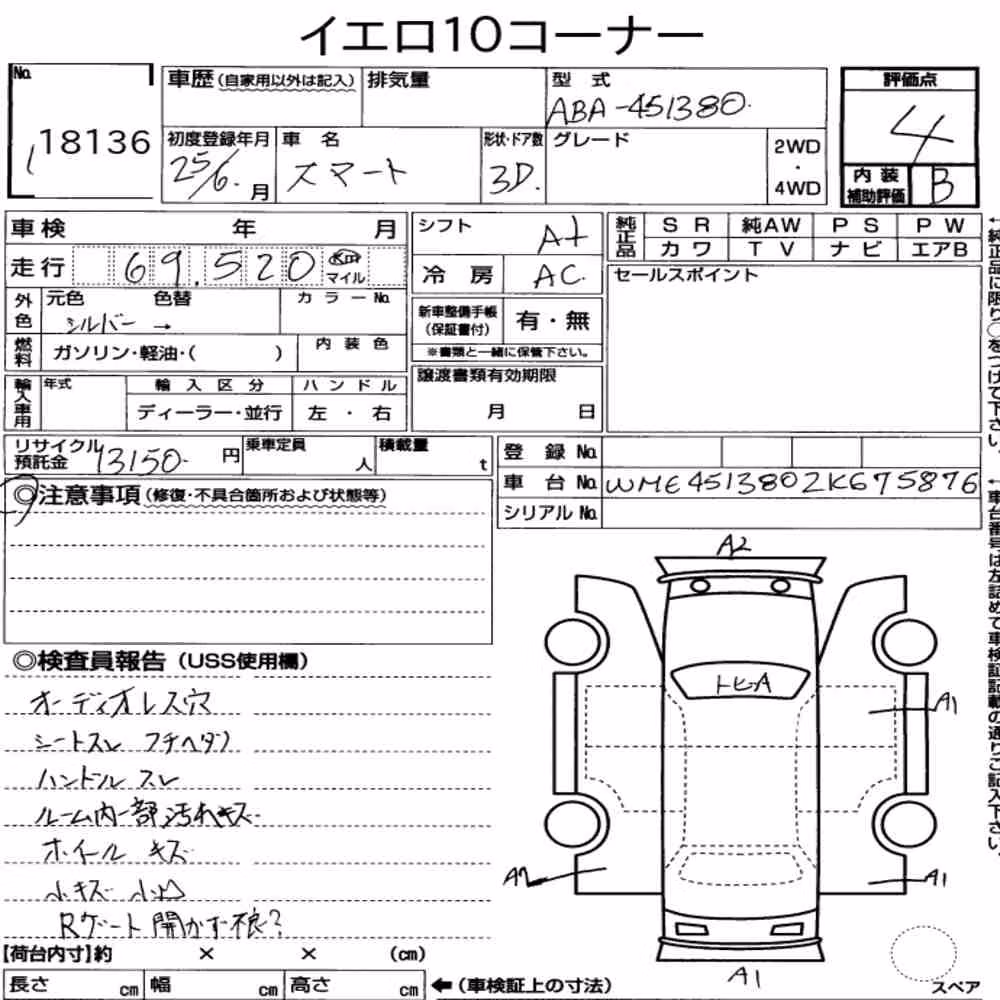 イエロ10コーナー
No. 18136
車歴(自家用以外は記入) 排気量 型式 ABA-451380
初度登録年月 25/6 月 車名 スマート 形状・ドア数 3D. グレード 2WD・4WD
評価点 4
内装補助評価 B
車検 年 月
走行 69,520 Km マイル
外色 元色 シルバー 色替 → カラーNo.
燃料 ガソリン・軽油・( ) 内装色
輸入車用 年式 輸入区分 ディーラー・並行 ハンドル 左・右
シフト At
冷房 AC
新車整備手帳(保証書付) 有・無
※書類と一緒に保管下さい。
譲渡書類有効期限 月 日
純正品 SR 純AW PS PW
カワ TV ナビ エアB
セールスポイント
リサイクル預託金 13150 円 乗車定員 人 積載量 t
登録No.
車台No. WME4513802K675876
シリアルNo.
◎注意事項(修復・不具合箇所および状態等)
◎検査員報告(USS使用欄)
オーディオレス穴
シートスレ フチヘタリ
ハンドルスレ
ルーム内一部汚れキズ
ホイールキズ
小キズ 小凹
Rゲート開かず不良?
【荷台内寸】約 × × (cm)
長さ cm 幅 cm 高さ cm ←(車検証上の寸法)
A2
トビA
A1
A2
A1
A1
スペア
←純正品に限り○をつけて下さい。
←車台番号は左詰めで車検証記載の通りご記入下さい。